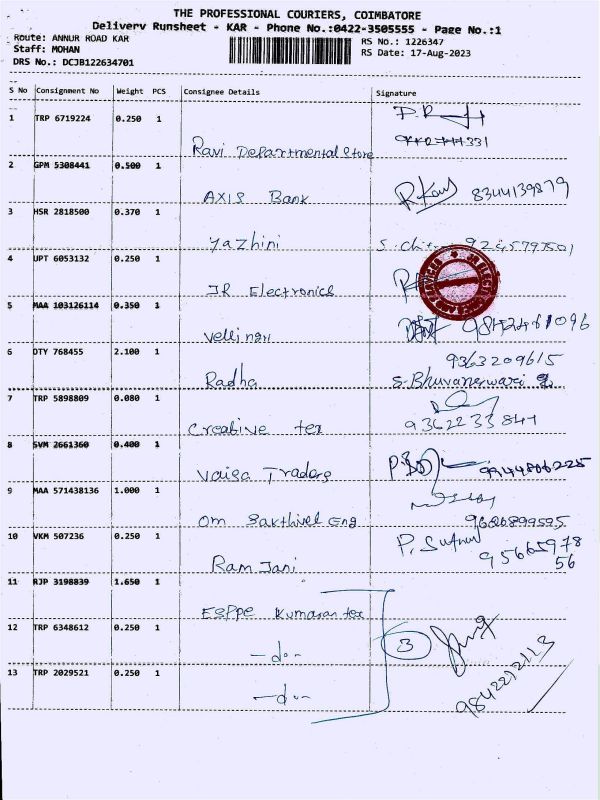 THE PROFESSIONAL COURIERS, COIMBATORE
Delivery Runsheet - KAR - Phone No.:0422-3505555 - Page No.:1
Route: ANNUR ROAD KAR
RS No.: 1226347
Staff: MOHAN
RS Date: 17-Aug-2023
DRS No.: DCJB122634701
S No Consignment No Weight PCS Consignee Details Signature
1 TRP 6719224 0.250 1
Ravi Departmental Store
2 GPM 5308441 0.500 1
AXIS Bank 8344139879
3 HSR 2818500 0.370 1
Yazhini
4 UPT 6053132 0.250 1
JR Electronics
5 MAA 103126114 0.350 1
Vellingri
6 DTY 768455 2.100 1 9363209615
Radha S. Bhuvaneswari
7 TRP 5898809 0.080 1
Creative tex 9362233844
8 SVM 2661360 0.400 1
Vaiga Traders 9944806225
9 MAA 571438136 1.000 1
Om Sakthivel Eng 9626899595
10 VKM 507236 0.250 1
Ram Jani 9566597856
11 RJP 3198839 1.650 1
Esppe Kumaran tex
12 TRP 6348612 0.250 1
-do- 3
13 TRP 2029521 0.250 1
-do- 9842212113